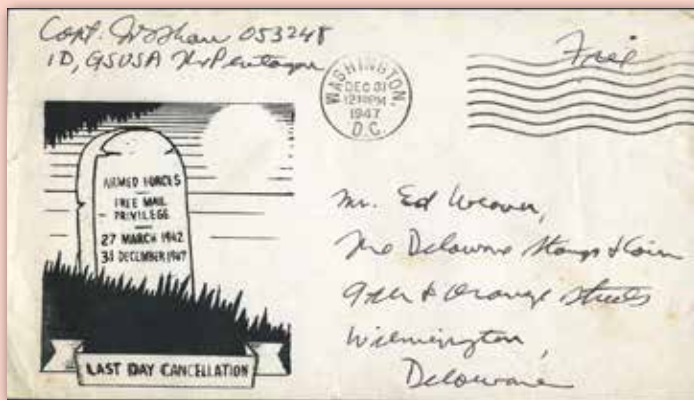 Capt. 053248
ID, GSUSA Pentagon
Free
WASHINGTON,
DEC 31
12 PM
1947
D.C.
ARMED FORCES
FREE MAIL
PRIVILEGE
27 MARCH 1942
31 DECEMBER 1947
LAST DAY CANCELLATION
Mr. Ed Weaver,
The Delaware Stamp & Coin
9th & Orange Streets
Wilmington,
Delaware